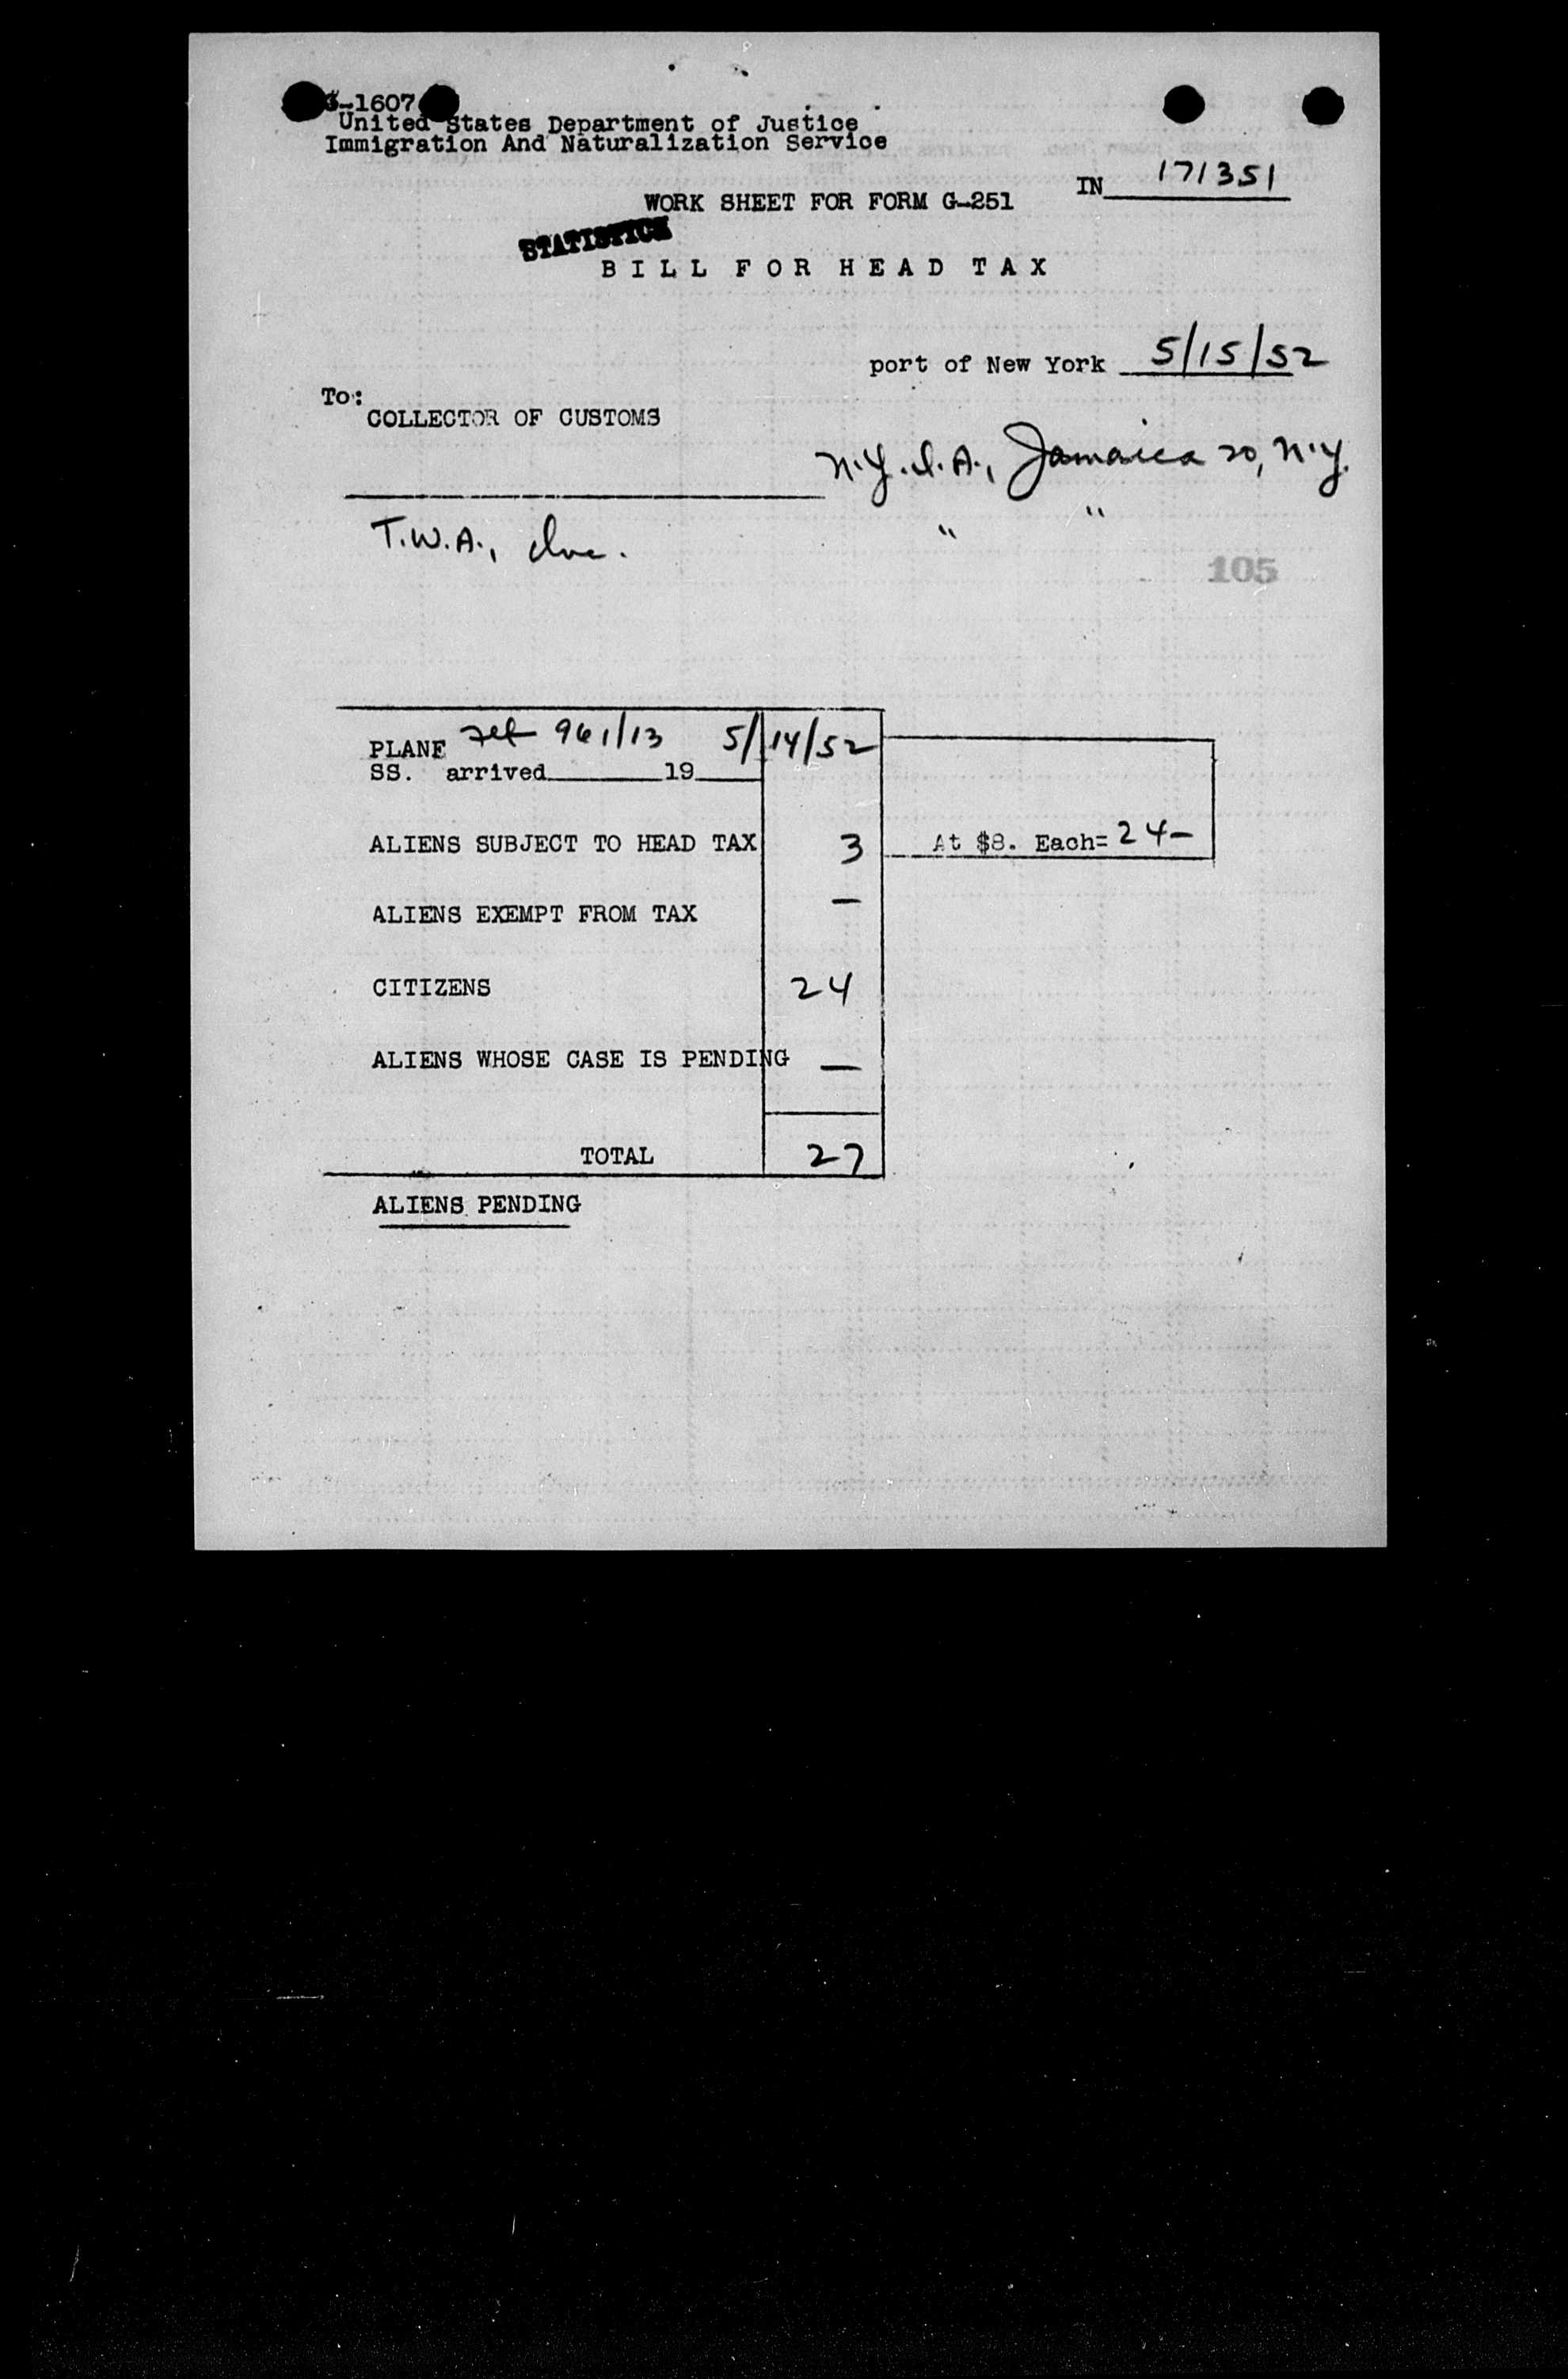 3-1607
United States Department of Justice
Immigration And Naturalization Service
IN 171351
WORK SHEET FOR FORM G-251
STATISTICS
BILL FOR HEAD TAX
port of New York 5/15/52
To:
COLLECTOR OF CUSTOMS
N.Y.I.A., Jamaica 20, N.Y.
T.W.A., Inc. " "
105
PLANE Flt 961/13 5/14/52
SS. arrived 19
ALIENS SUBJECT TO HEAD TAX 3 At $8. Each= 24-
ALIENS EXEMPT FROM TAX —
CITIZENS 24
ALIENS WHOSE CASE IS PENDING —
TOTAL 27
ALIENS PENDING